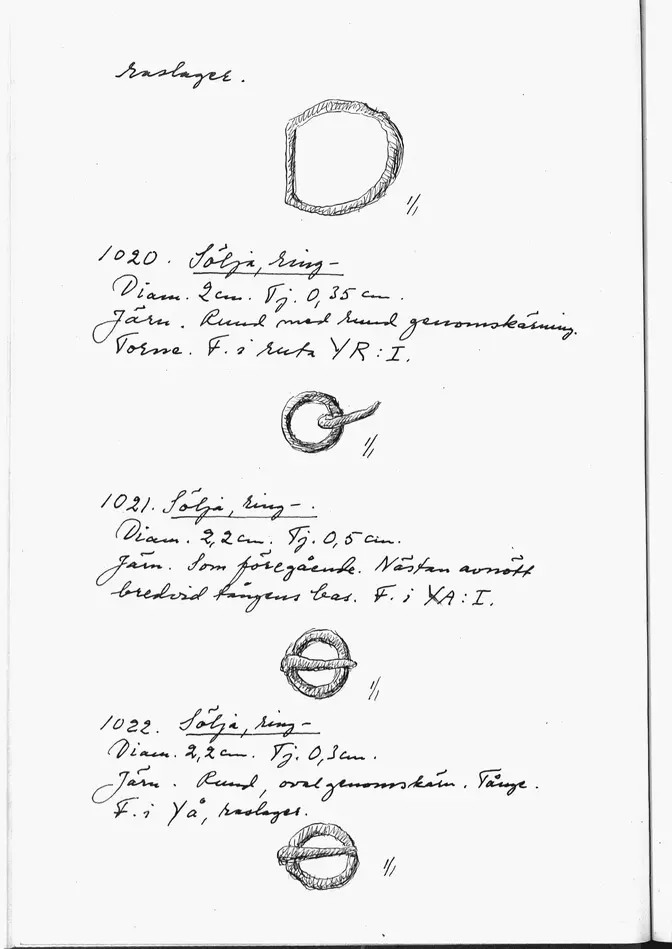 raslager.
1/1
1020. Sölja, ring-
Diam. 2 cm. Tj. 0,35 cm.
Järn. Rund med rund genomskärning.
Torne. F. i ruta YR:I.
1/1
1021. Sölja, ring-.
Diam. 2,2 cm. Tj. 0,5 cm.
Järn. Som föregående. Nästan avnött
bredvid tångens bas. F. i XA:I.
1/1
1022. Sölja, ring-
Diam. 2,2 cm. Tj. 0,3 cm.
Järn. Rund, oval genomskärn. Tånge.
F. i Yå, raslager.
1/1